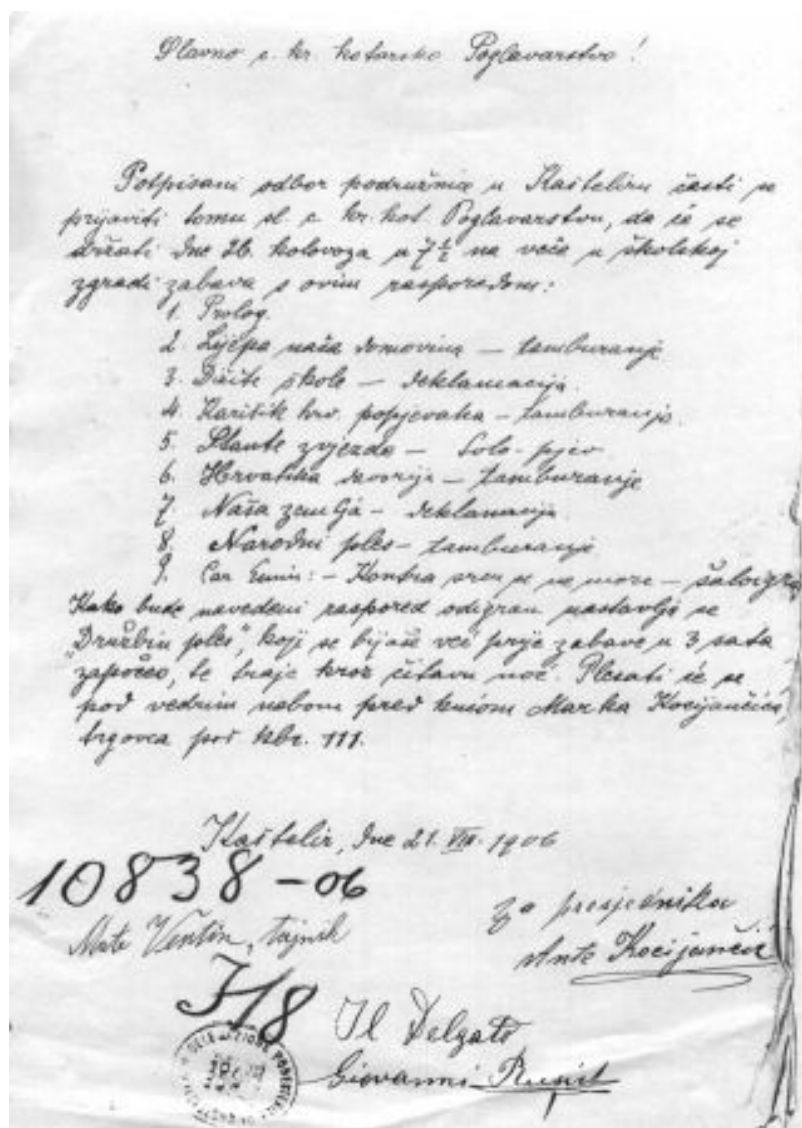 Slavno c. kr. kotarsko Poglavarstvo!
Potpisani odbor podružnice u Kašteliru časti se
prijaviti tomu sl. c. kr. kot. Poglavarstvu, da će se
držati dne 26. kolovoza u 7 ½ na veče u školskoj
zgradi zabava s ovim rasporedom:
1. Prolog.
2. Lijepa naša domovina — tamburanje
3. Dižite škole — deklamacija.
4. Karišik hrv. popjevaka — tamburanje.
5. zvjezde — Solo-pjev.
6. Hrvatska davorija — tamburanje
7. Naša zemlja — deklamacija
8. Narodni ples — tamburanje
9. Car Emin: — Kontra sreu se ne more — šaloigra,
Kako bude navedeni raspored odigran nastavlja se
„Družbin ples", koji se bijaše već prije zabave u 3 sata
započeo, te traje kroz čitavu noć. Plesati će se
pod vedrim nebom pred kućom Marka Kocijančića,
trgovca pod kbr. 111.
Kaštelir, dne 21. VIII. 1906
10838-06
za presjednika
Mate Ventin, tajnik
Ante Kocijančić
Il Delgato
Giovanni